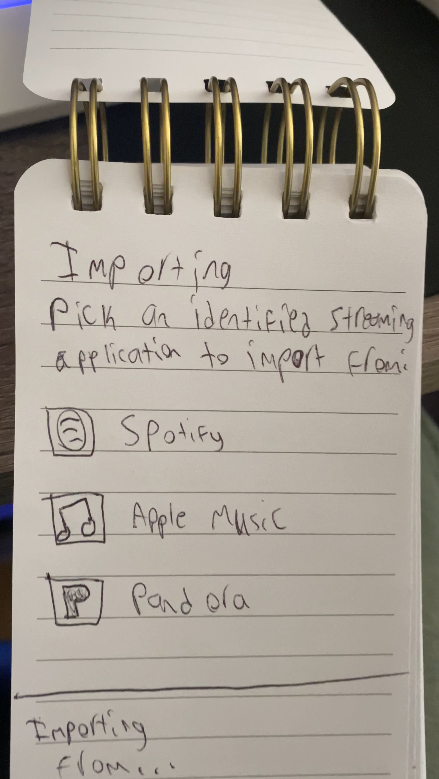 Importing
Pick an identified streaming
application to import from:
Spotify
Apple Music
P Pandora
Importing
from...